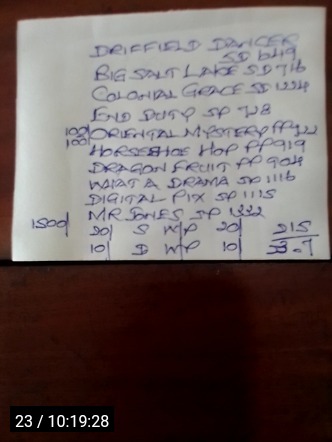 DRIFFIELD DANCER
SD 649
BIG SALT LAKE SD 716
COLONIAL GRACE SD 1224
END DUTY SP 728
100/ ORIENTAL MYSTERY PP 922
100/ HORSESHOE HOP PP 919
DRAGON FRUIT PP 904
WHAT A DRAMA SD 1116
DIGITAL PIX SP 1115
MR JONES SP 1222
1500/ 20/ S W/P 20/ 215
10/ D W/P 10/
23 / 10:19:28